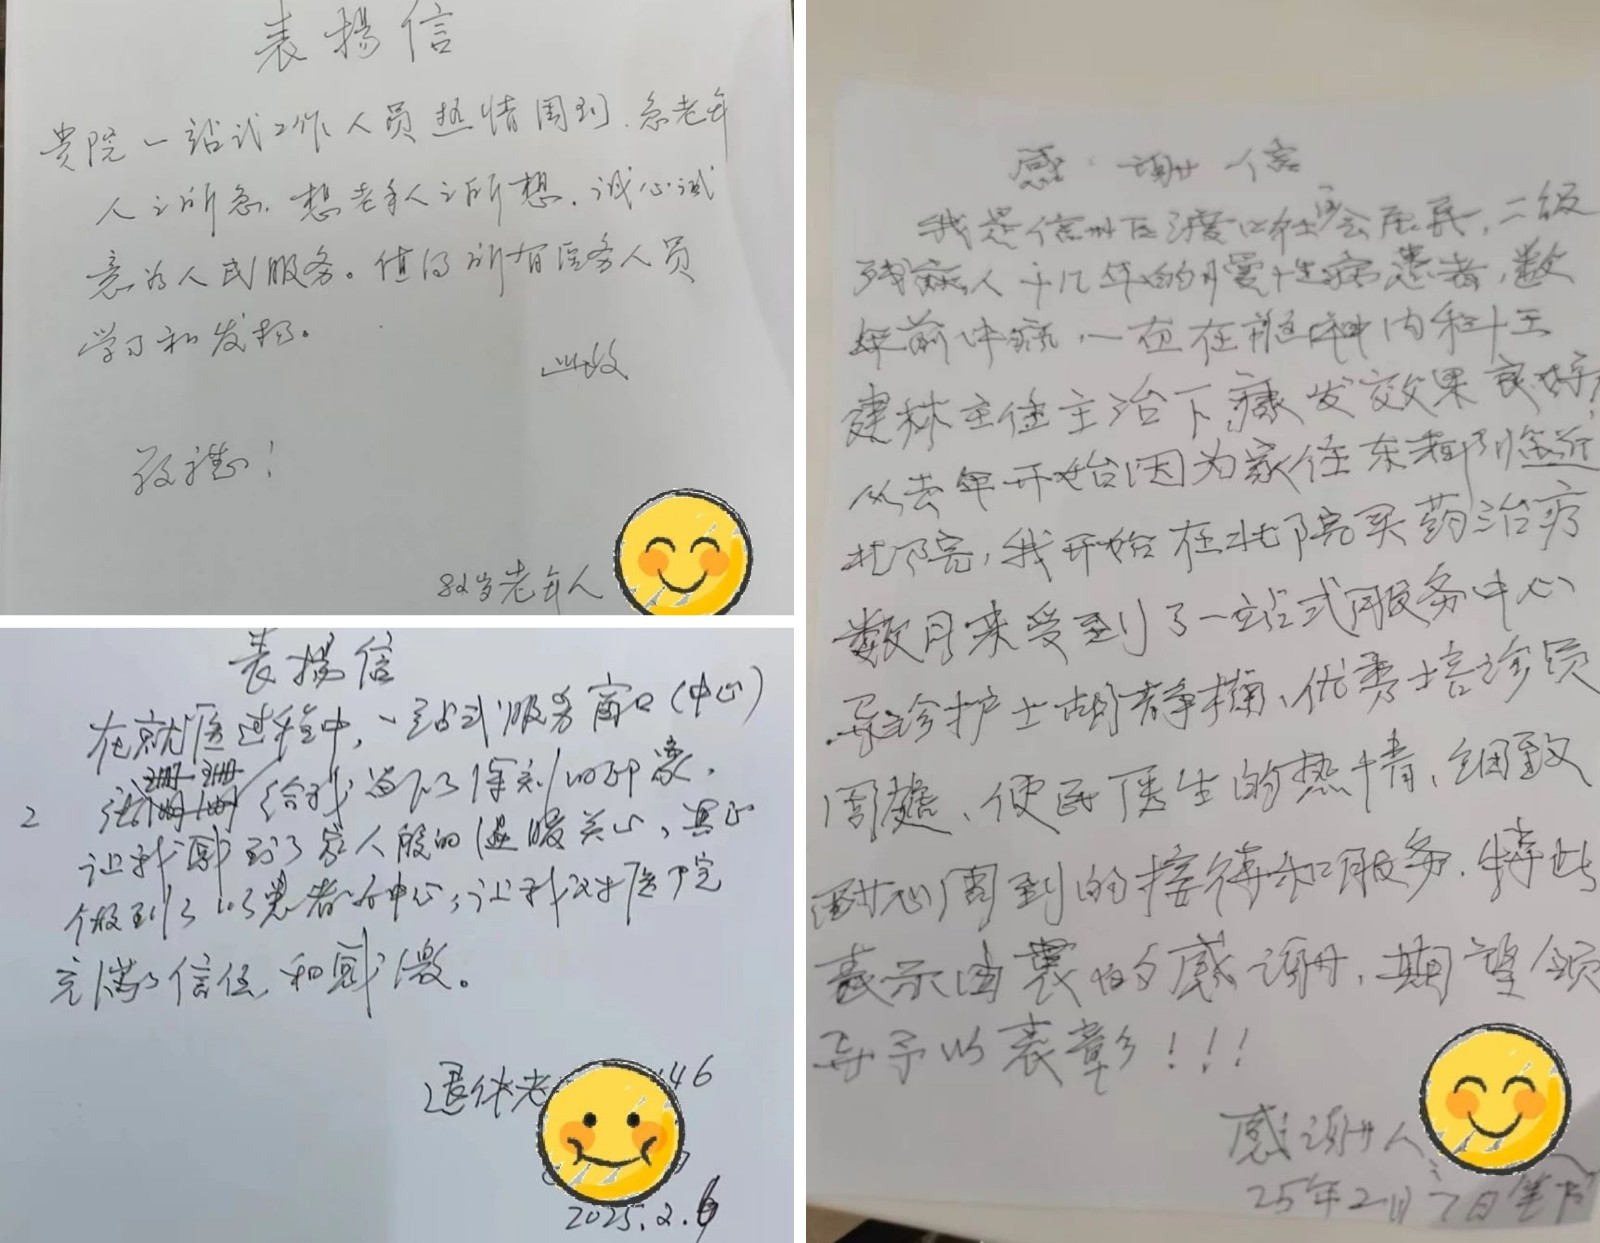 表揚信
贵院一站式工作人员热情周到.急老年
人之所急.想老年人之所想.诚心诚
意为人民服务。值得所有医务人员
学习和发扬。
此致
敬礼!
82岁老年人
表揚信
在就医过程中,一站式服务窗口(中心)
珊珊
2 张 给我留下了深刻的印象.
让我感到了家人般的温暖关心,真正
做到了以患者为中心,让我对医院
充满了信任和感激。
退休老 46
2025.2.6
感谢信
我是信州区渡口社区会居民,二级
残疾人十几年的慢性病患者,数
年前中疯,一直在 神内科
建林主任主治下 发效果良好!
从去年开始因为家住东 临近
北院,我开始在北院买药治疗
数月来受到了一站式服务中心
导诊护士胡静 、优秀培诊员
周 、便民医生的热情、细致
耐心周到的接待和服务.特此
表示由衷的感谢,期望领
导予以表彰!!!
感谢人:
25年2月7日笔